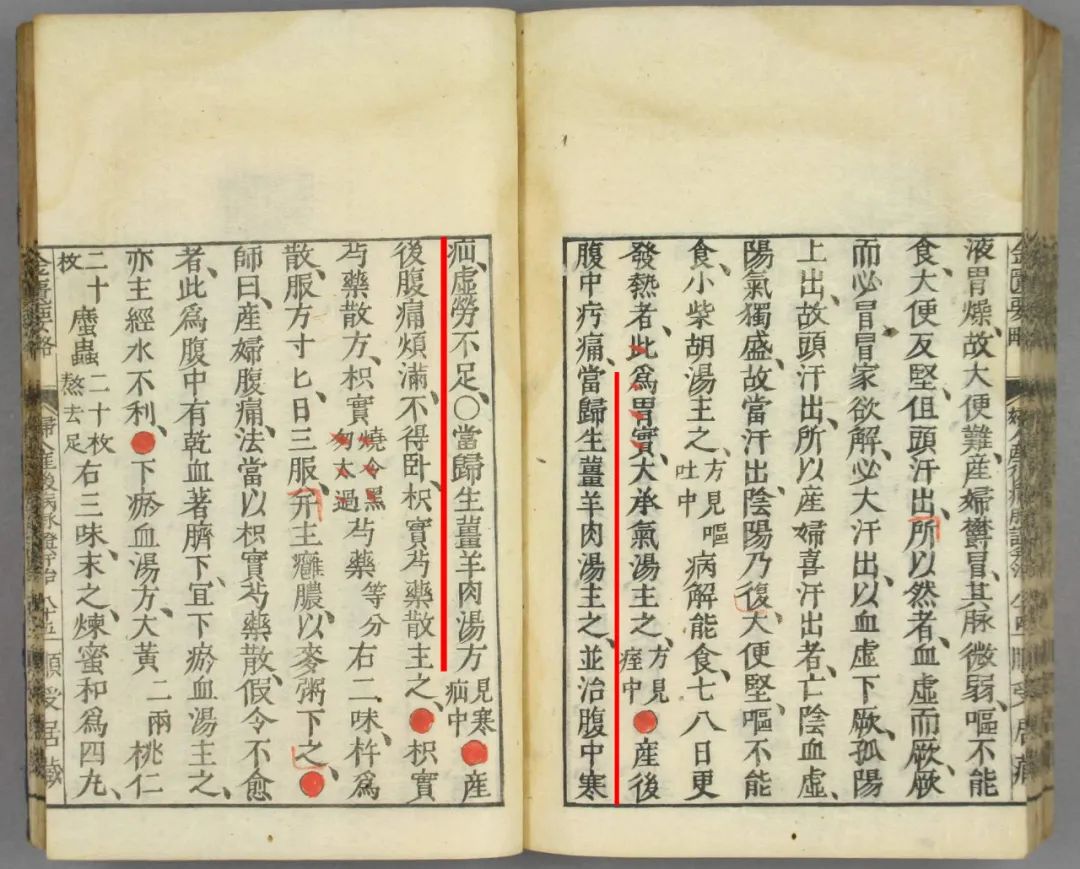 金匱要略
液胃燥、故大便難、産婦鬱冒、其脉微弱、嘔不能
食、大便反堅、但頭汗出、所以然者、血虛而厥、厥
而必冒、冒家欲解、必大汗出、以血虛下厥、孤陽
上出、故頭汗出、所以産婦喜汗出者、亡陰血虛、
陽氣獨盛、故當汗出、陰陽乃復、大便堅、嘔不能
食、小柴胡湯主之、方見嘔吐中 病解能食、七八日更
發熱者、此爲胃實、大承氣湯主之、方見痓中●産後
腹中㽲痛、當歸生薑羊肉湯主之、並治腹中寒
疝、虛勞不足、〇當歸生薑羊肉湯方 見寒疝中●産
後腹痛、煩滿、不得卧、枳實芍藥散主之、●枳實
芍藥散方、枳實 燒令黑勿太過 芍藥 等分 右二味、杵爲
散、服方寸匕、日三服、并主癰膿、以麥粥下之、●
師曰、産婦腹痛、法當以枳實芍藥散、假令不愈
者、此爲腹中有乾血著臍下、宜下瘀血湯主之、
亦主經水不利、●下瘀血湯方、大黃 二兩 桃仁
二十枚 䗪蟲 二十枚熬去足 右三味、末之、煉蜜和爲四丸、
金匱要略 婦人産後病脉證并治 八十五 順受居藏